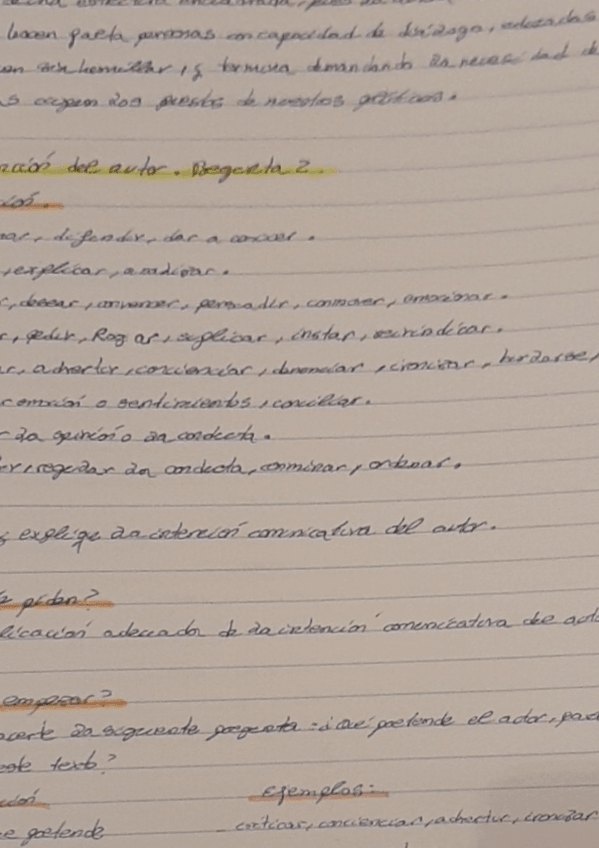 hacen falta personas con capacidad de diálogo,
demandando la necesidad de
s ocupen los puestos de nuestros políticos.
nción del autor. Pregunta 2.
ión.
mar, defender, dar a conocer.
, explicar, analizar.
r, desear, convencer, persuadir, conmover, emocionar.
r, pedir, Rogar, suplicar, instar, reivindicar.
ar, advertir, concienciar, denunciar, ironizar, burlarse,
r emoción o sentimientos, conciliar.
r la opinión o la conducta.
er, regular la conducta, conminar, ordenar.
s explique la intención comunicativa del autor.
te piden?
licación adecuada de la intención comunicativa del auto
empezar?
acerte la siguiente pregunta: ¿Qué pretende el autor, para
este texto?
ción
Ejemplos:
e pretende
criticar, concienciar, advertir, ironizar